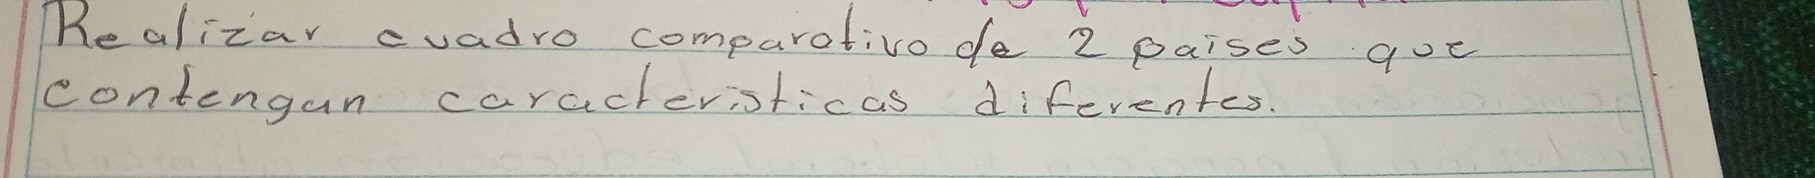 Realizar cuadro comparativo de 2 paises que
contengan caracteristicas diferentes.